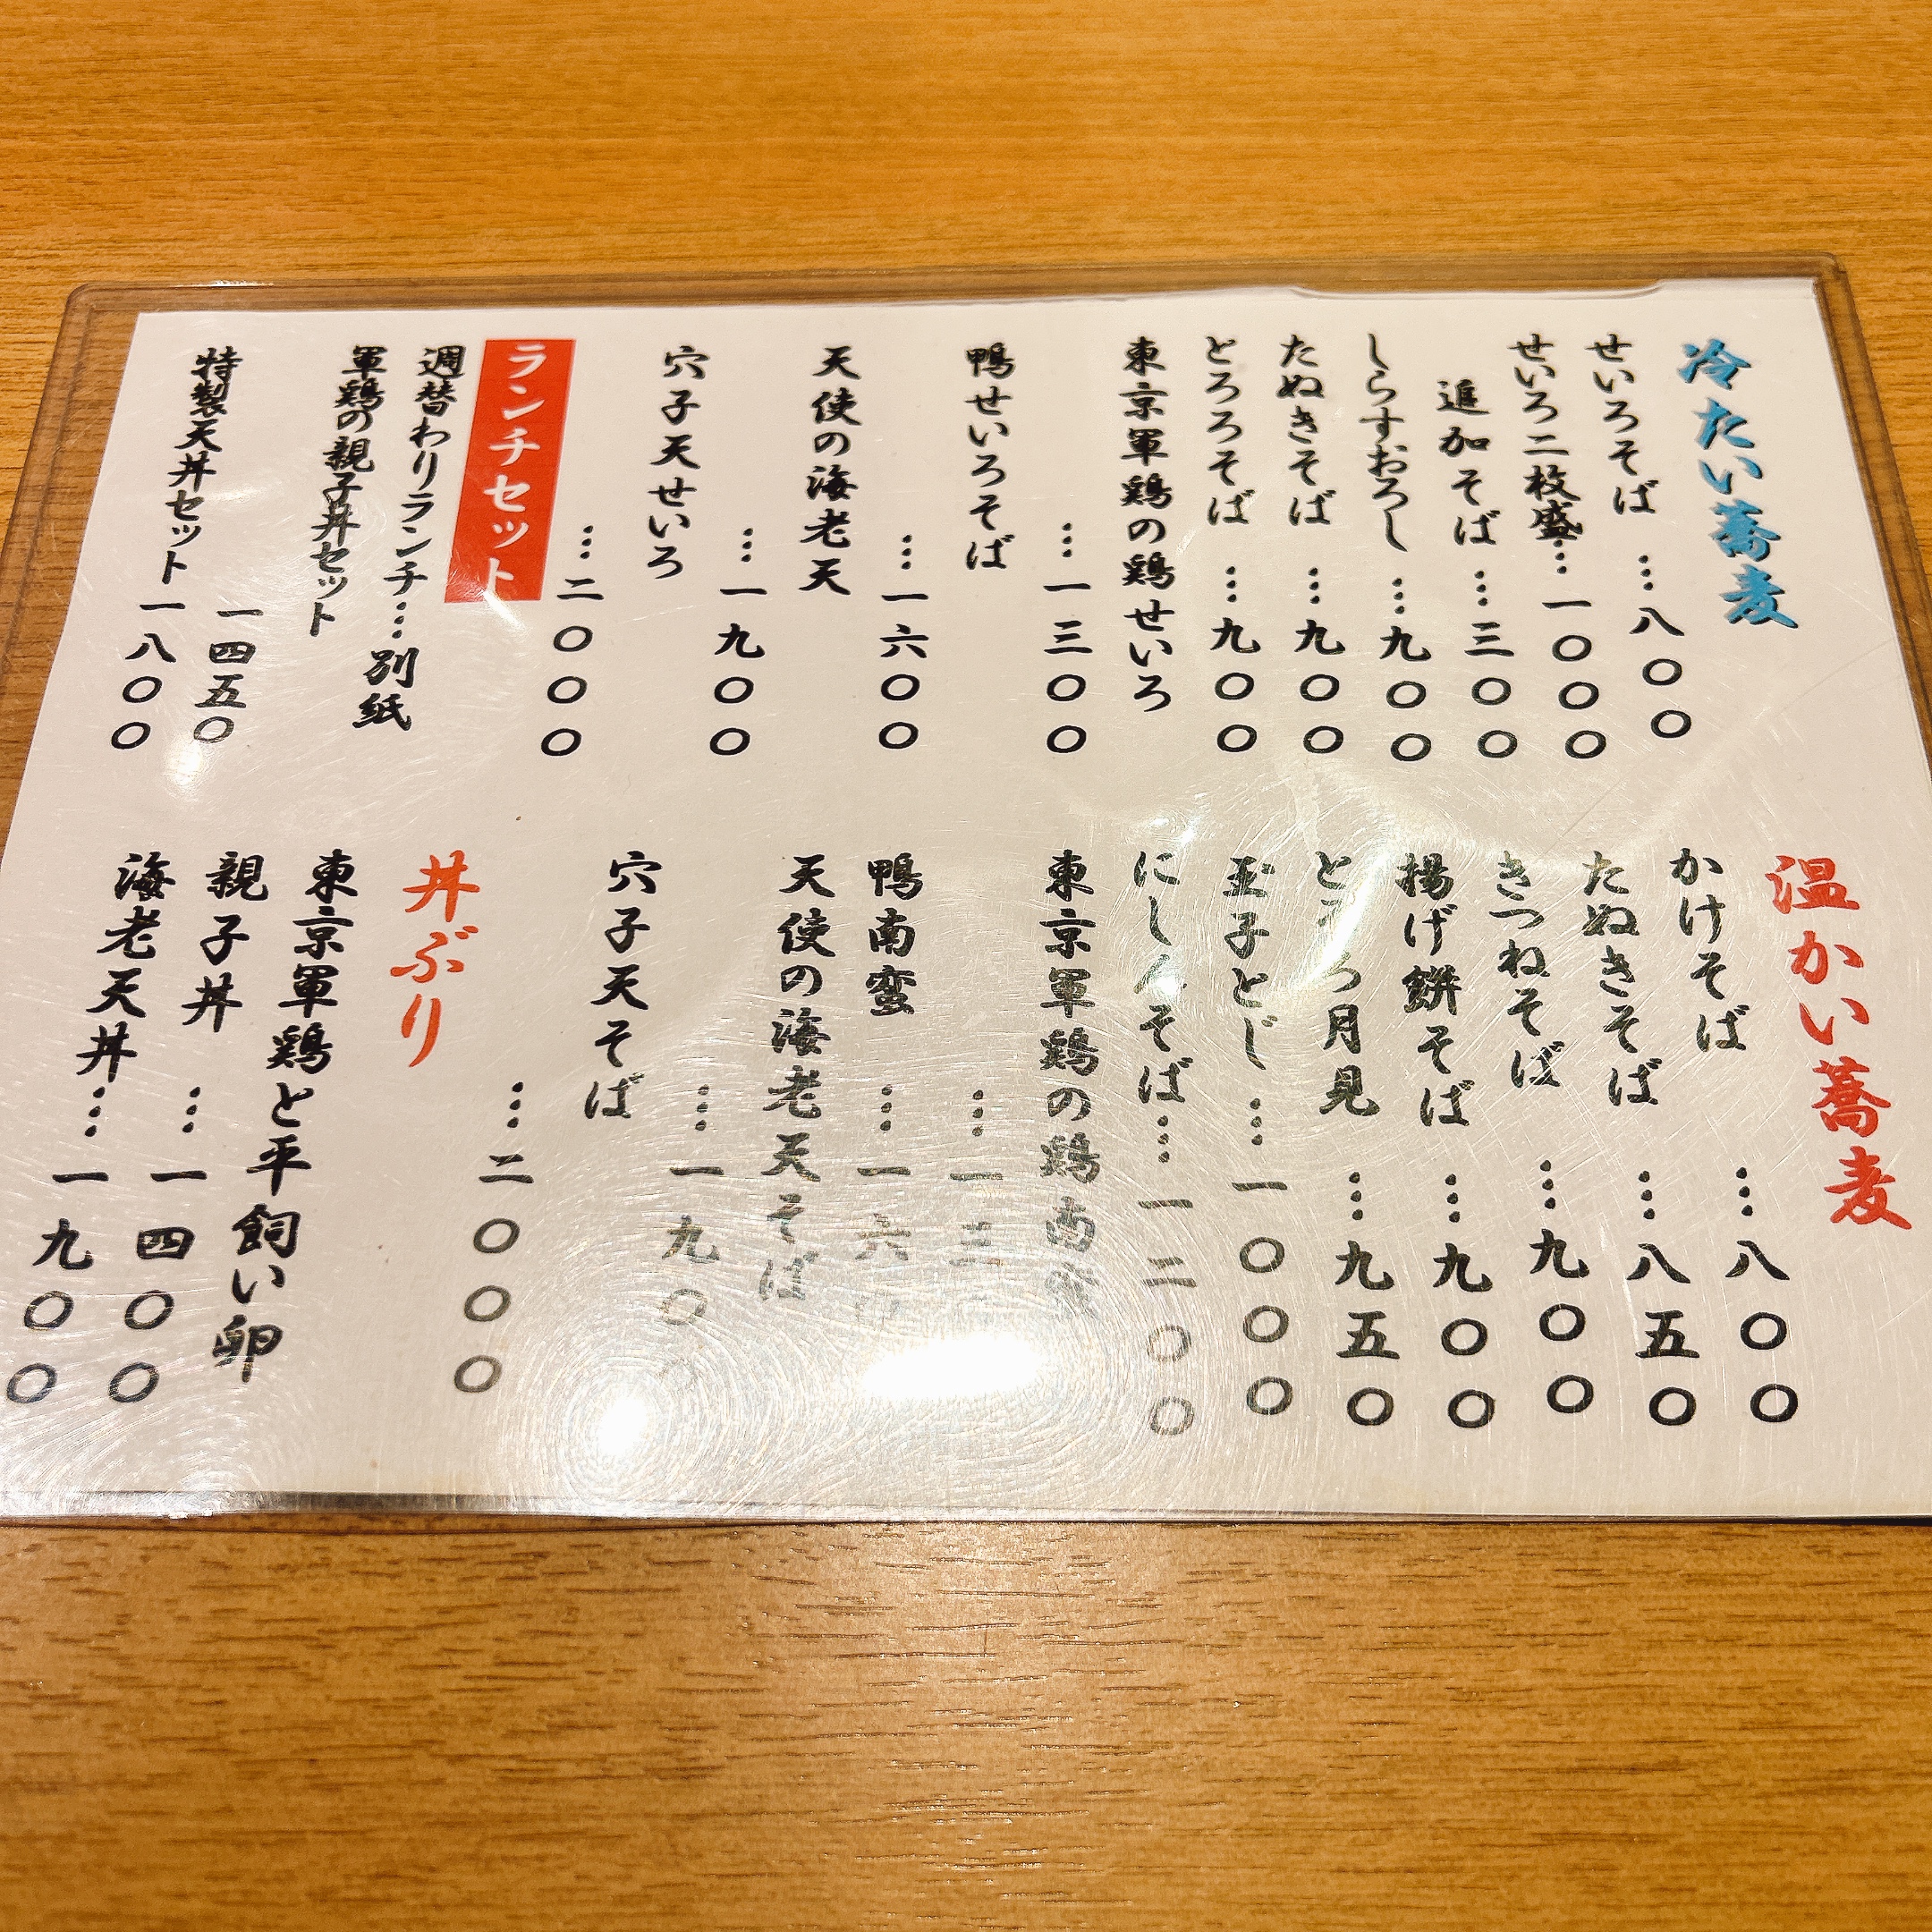 冷たい蕎麦
せいろそば …八〇〇
せいろ二枚盛…一〇〇〇
追加そば …三〇〇
しらすおろし …九〇〇
たぬきそば …九〇〇
とろろそば …九〇〇
東京軍鶏の鶏せいろ
…一三〇〇
鴨せいろそば
…一六〇〇
天使の海老天
…一九〇〇
穴子天せいろ
…二〇〇〇
ランチセット
週替わりランチ…別紙
軍鶏の親子丼セット
一四五〇
特製天丼セット
一八〇〇
温かい蕎麦
かけそば …八〇〇
たぬきそば …八五〇
きつねそば …九〇〇
揚げ餅そば …九〇〇
月見 …九五〇
玉子とじ …一〇〇〇
にしんそば…一二〇〇
東京軍鶏の鶏南蛮
…一三
鴨南蛮 …一六
天使の海老天そば
…一九〇
穴子天そば
…二〇〇〇
丼ぶり
東京軍鶏と平飼い卵
親子丼 …一四〇〇
海老天丼…一九〇〇